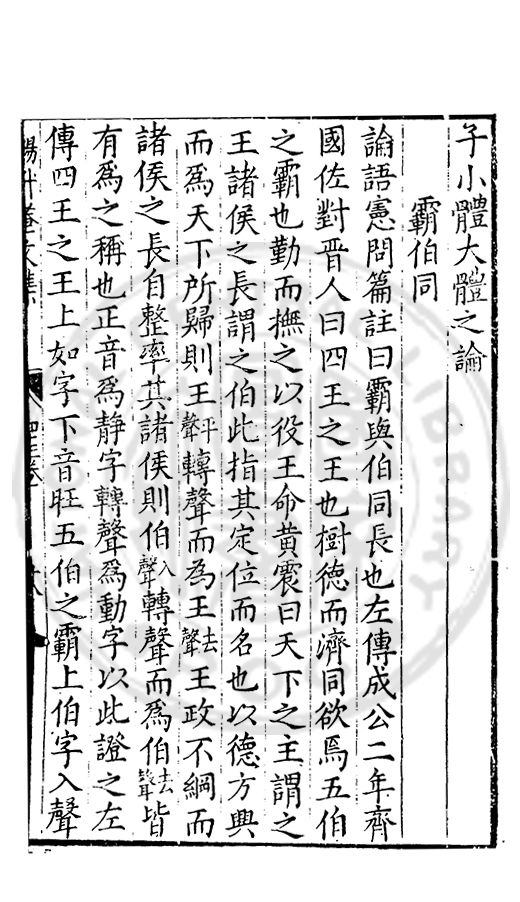 子小體大體之論
霸伯同
論語憲問篇註曰霸與伯同長也左傳成公二年齊
國佐對晋人曰四王之王也樹德而濟同欲焉五伯
之霸也勤而撫之以役王命黄震曰天下之主謂之
王諸侯之長謂之伯此指其定位而名也以德方興
而爲天下所歸則王平聲轉聲而為王去聲王政不綱而
諸侯之長自整率其諸侯則伯入聲轉聲而爲伯去聲皆
有為之稱也正音爲静字轉聲爲動字以此證之左
傳四王之王上如字下音旺五伯之霸上伯字入聲